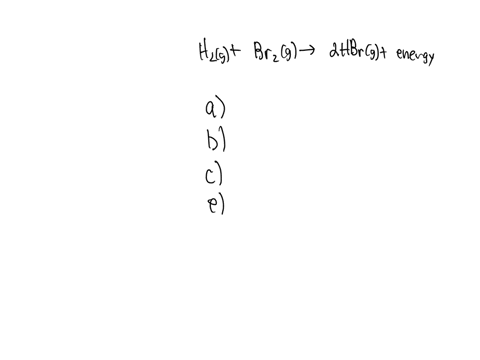 H₂(g) + Br₂(g) → 2HBr(g) + energy
a)
b)
c)
e)